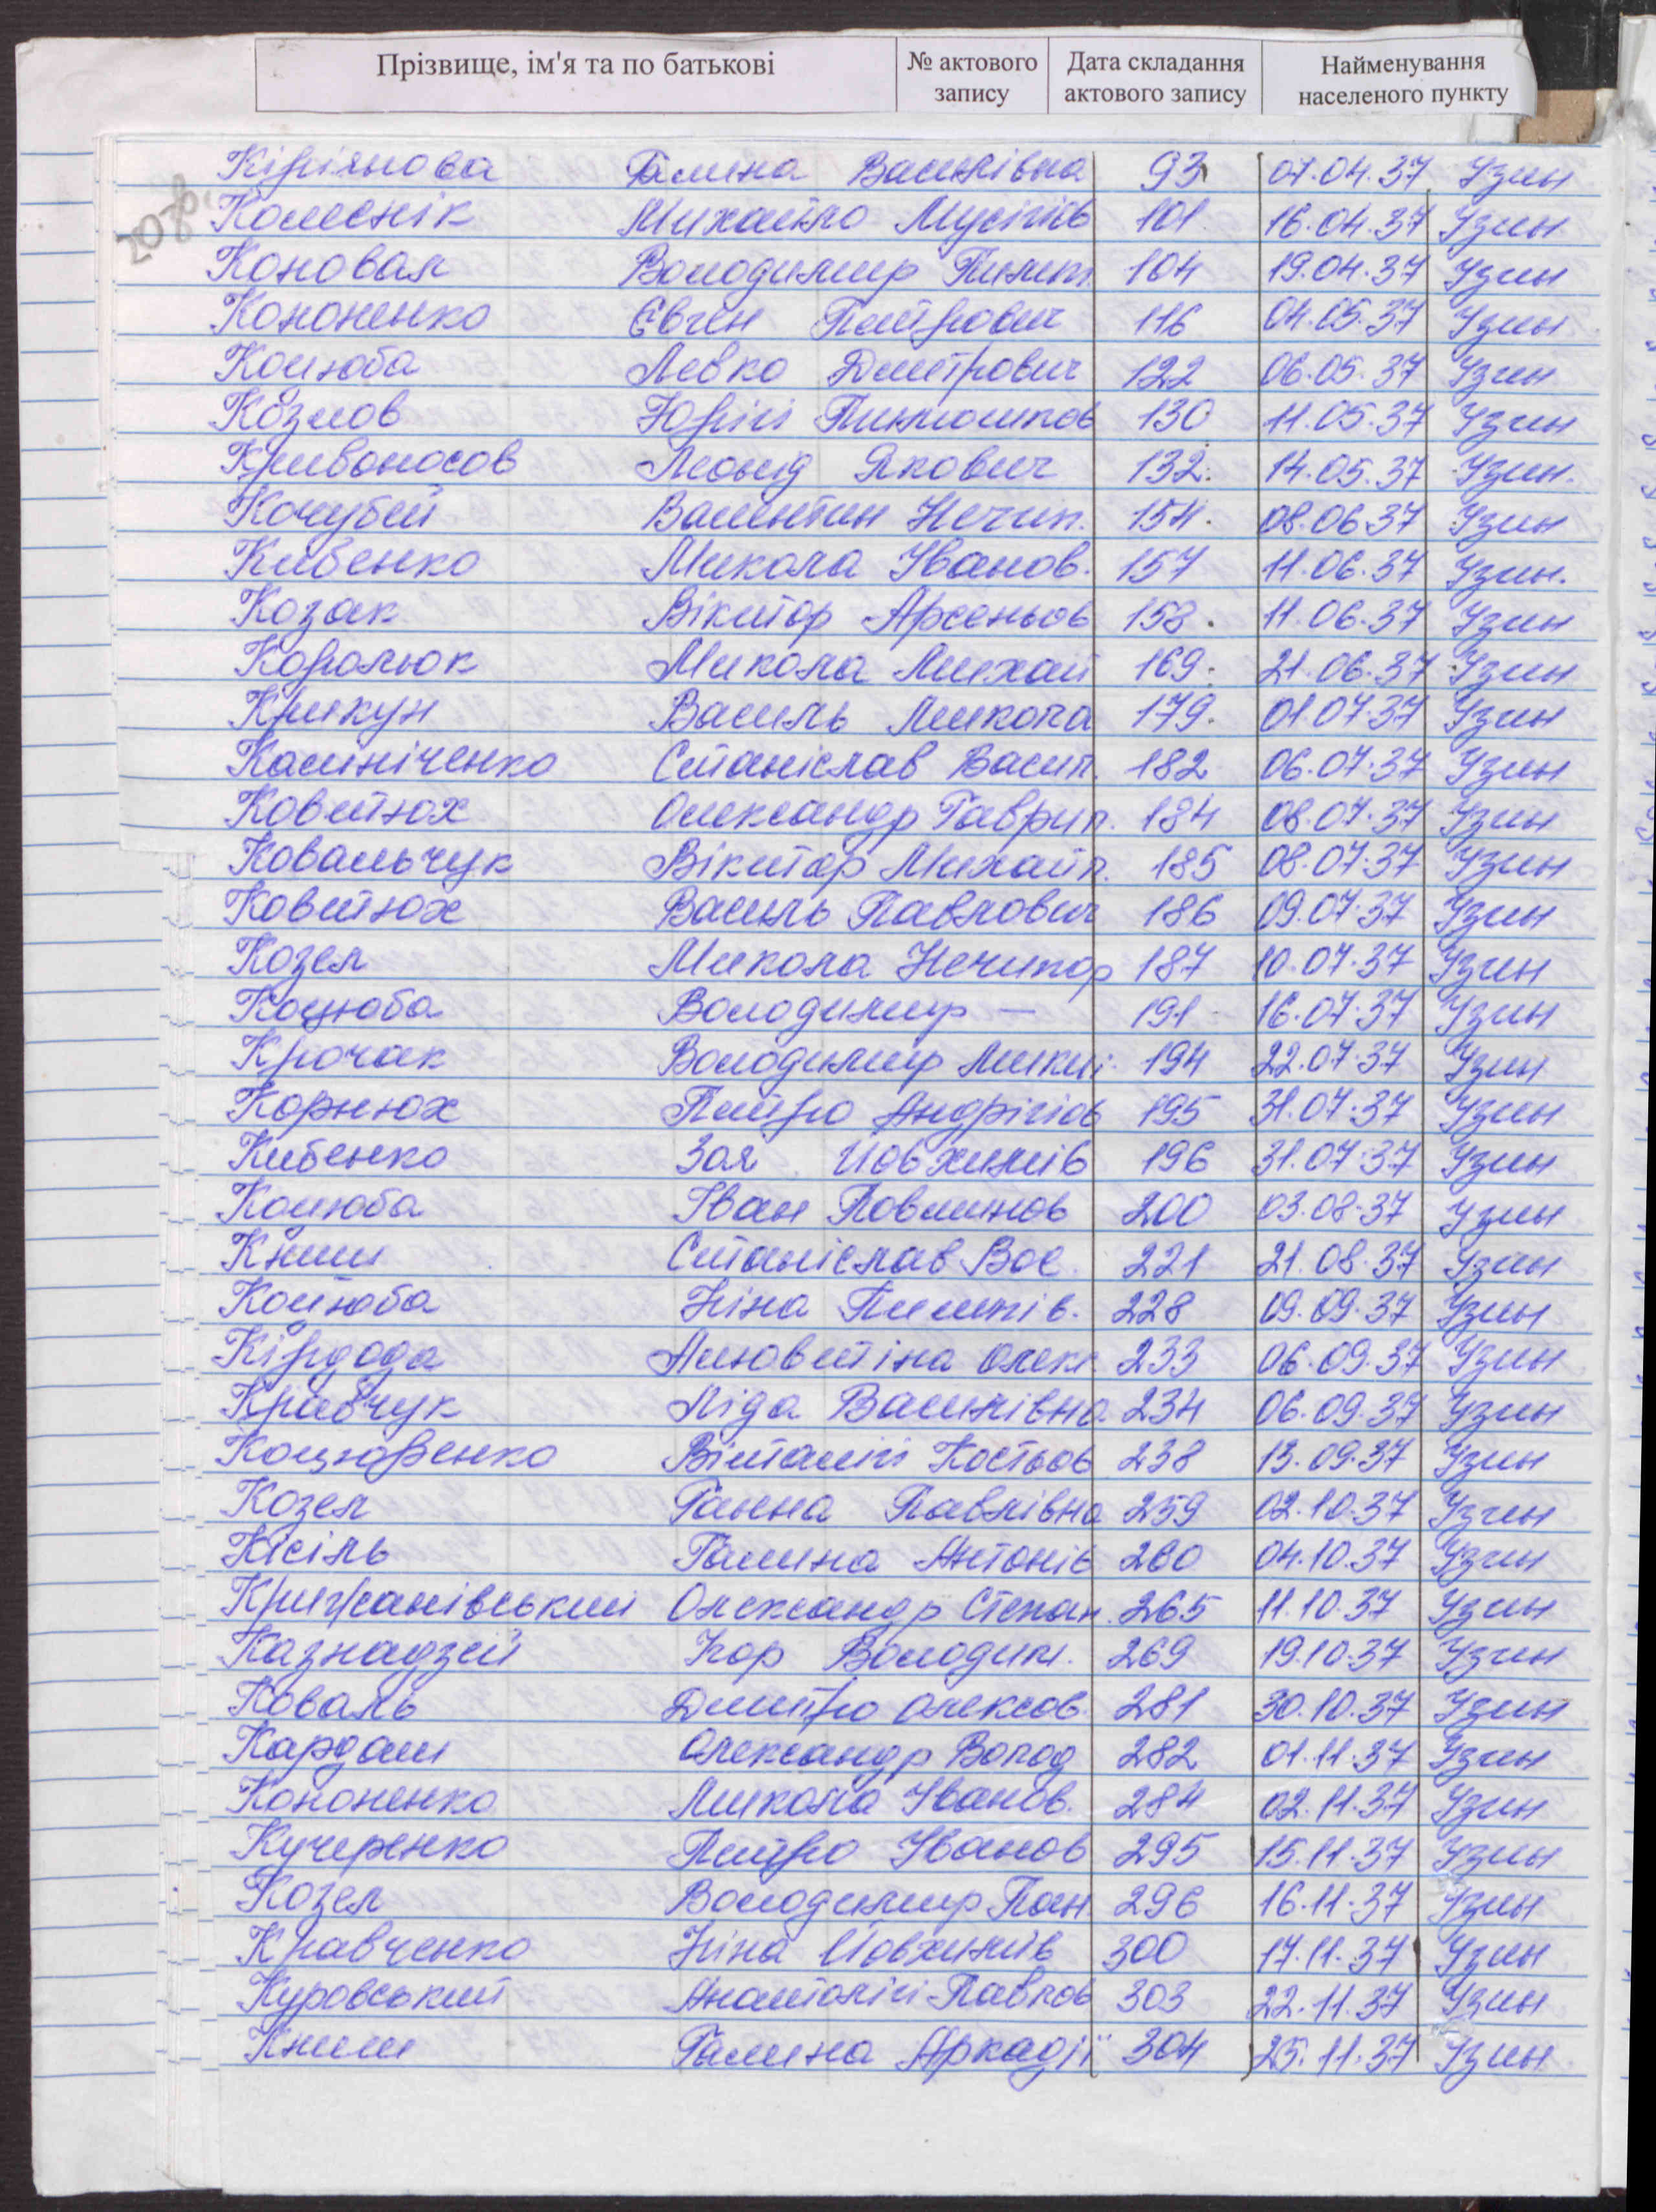 Прізвище, ім'я та по батькові № актового запису Дата складання актового запису Найменування населеного пункту
Кірільнова Галина Василівна 93 07.04.37 Узин
2070
Колеснік Михайло Мусійов 101 16.04.37 Узин
Коновал Володимир Пилип. 104 19.04.37 Узин
Кононенко Євген Петрович 116 04.05.37 Узин
Коцюба Левко Дмитрович 122 06.05.37 Узин
Козлов Юрій 130 11.05.37 Узин
Кривоносов Леонід Якович 132. 14.05.37 Узин.
Кочубей Валентин Нечип. 154. 08.06.37 Узин
Кибенко Микола Іванов. 157 11.06.37 Узин.
Козак Віктор Арсеньов 158. 11.06.37 Узин
Королюк Микола Михай 169. 21.06.37 Узин
Крикун Василь Микола 179. 01.07.37 Узин
Калініченко Станіслав Васил. 182 06.07.37 Узин
Ковтюх Олександр Гаврил. 184 08.07.37 Узин
Ковальчук Віктор Михайл. 185 08.07.37 Узин
Ковтюх Василь Павлович 186 09.07.37 Узин
Козел Микола Нечипор 187 10.07.37 Узин
Коцюба Володимир — 191 16.07.37 Узин
Крочак Володимир Мики 194 22.07.37 Узин
Корнюх Петро Андрійов 195 31.07.37 Узин
Кибенко Зоя Йовхимів 196 31.07.37 Узин
Коцюба Іван Повлинов 200 03.08.37 Узин
Книш Станіслав Вас. 221 21.08.37 Узин
Коцюба Ніна Пилипів. 228 09.09.37 Узин
Кірдода Алювтіна Олекс 233 06.09.37 Узин
Кравчук Ліда Василівна 234 06.09.37 Узин
Коцюренко Віталій Костьов 238 13.09.37 Узин
Козел Ганна Павлівна 259 02.10.37 Узин
Кісіль Галина Антонів 260 04.10.37 Узин
Крижанівський Олександр Степан. 265 11.10.37 Узин
Казнадзей Ігор Володим. 269 19.10.37 Узин
Коваль Дмитро Олексов. 281 30.10.37 Узин
Кардаш Олександр Волод 282 01.11.37 Узин
Кононенко Микола Іванов. 284 02.11.37 Узин
Кучеренко Петро Іванов 295 15.11.37 Узин
Козел Володимир Пан 296 16.11.37 Узин
Кравченко Ніна Йовхимів 300 17.11.37 Узин
Куровський Анатолій Павлов 303 22.11.37 Узин
Книш Галина Аркадії 304 25.11.37 Узин